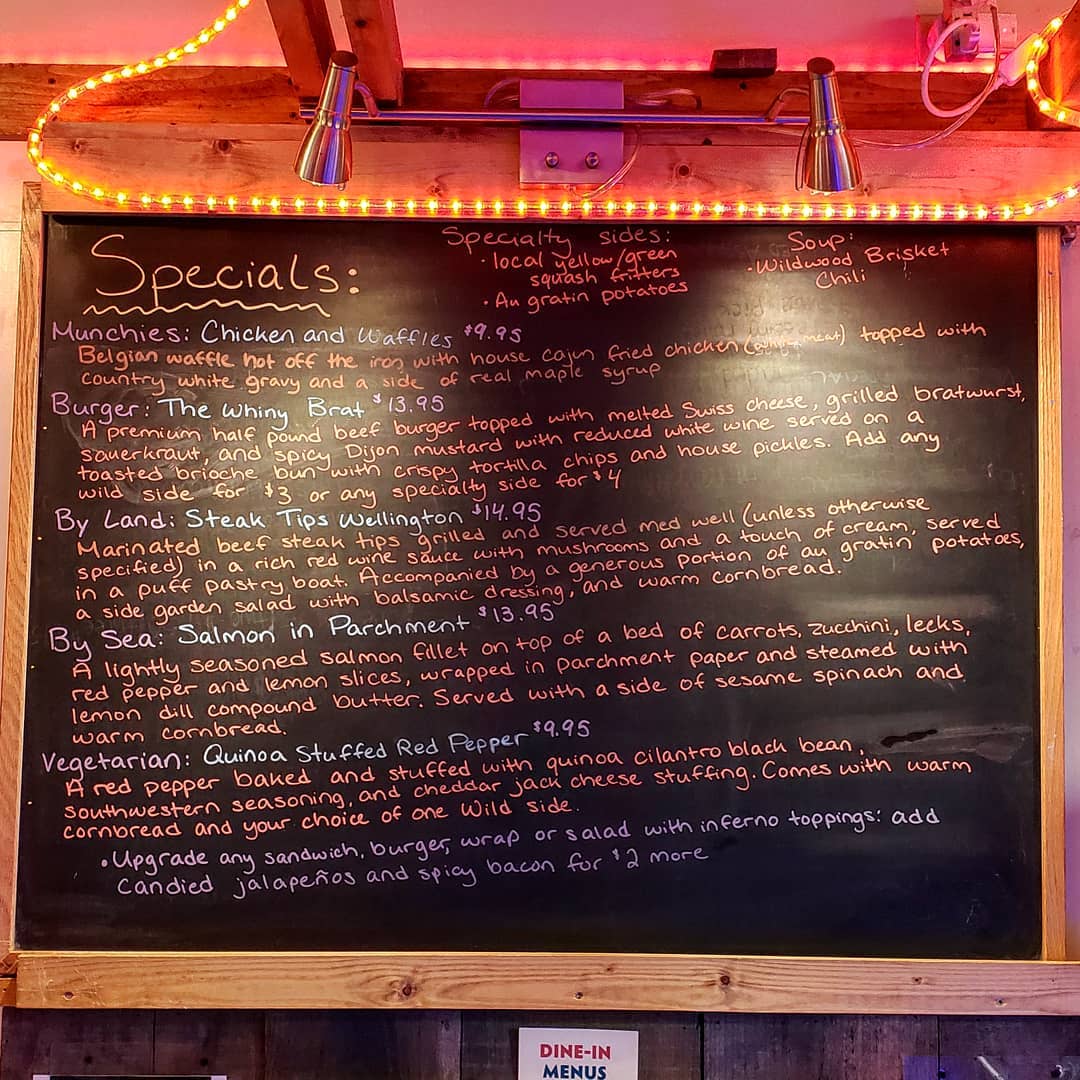 Specials:
Specialty sides:
· local yellow/green
squash fritters
· Au gratin potatoes
Soup:
· Wildwood Brisket
Chili
Munchies: Chicken and Waffles $9.95
Belgian waffle hot off the iron with house cajun fried chicken (white meat) topped with
country white gravy and a side of real maple syrup
Burger: The Whiny Brat $13.95
A premium half pound beef burger topped with melted Swiss cheese, grilled bratwurst,
sauerkraut, and spicy Dijon mustard with reduced white wine served on a
toasted brioche bun with crispy tortilla chips and house pickles. Add any
wild side for $3 or any specialty side for $4
By Land: Steak Tips Wellington $14.95
Marinated beef steak tips grilled and served med well (unless otherwise
specified) in a rich red wine sauce with mushrooms and a touch of cream, served
in a puff pastry boat. Accompanied by a generous portion of au gratin potatoes,
a side garden salad with balsamic dressing, and warm cornbread.
By Sea: Salmon in Parchment $13.95
A lightly seasoned salmon fillet on top of a bed of carrots, zucchini, leeks,
red pepper and lemon slices, wrapped in parchment paper and steamed with
lemon dill compound butter. Served with a side of sesame spinach and
warm cornbread.
Vegetarian: Quinoa Stuffed Red Pepper $9.95
A red pepper baked and stuffed with quinoa cilantro black bean,
southwestern seasoning, and cheddar jack cheese stuffing. Comes with warm
cornbread and your choice of one Wild side.
· Upgrade any sandwich, burger, wrap or salad with inferno toppings: add
candied jalapeños and spicy bacon for $2 more
DINE-IN
MENUS